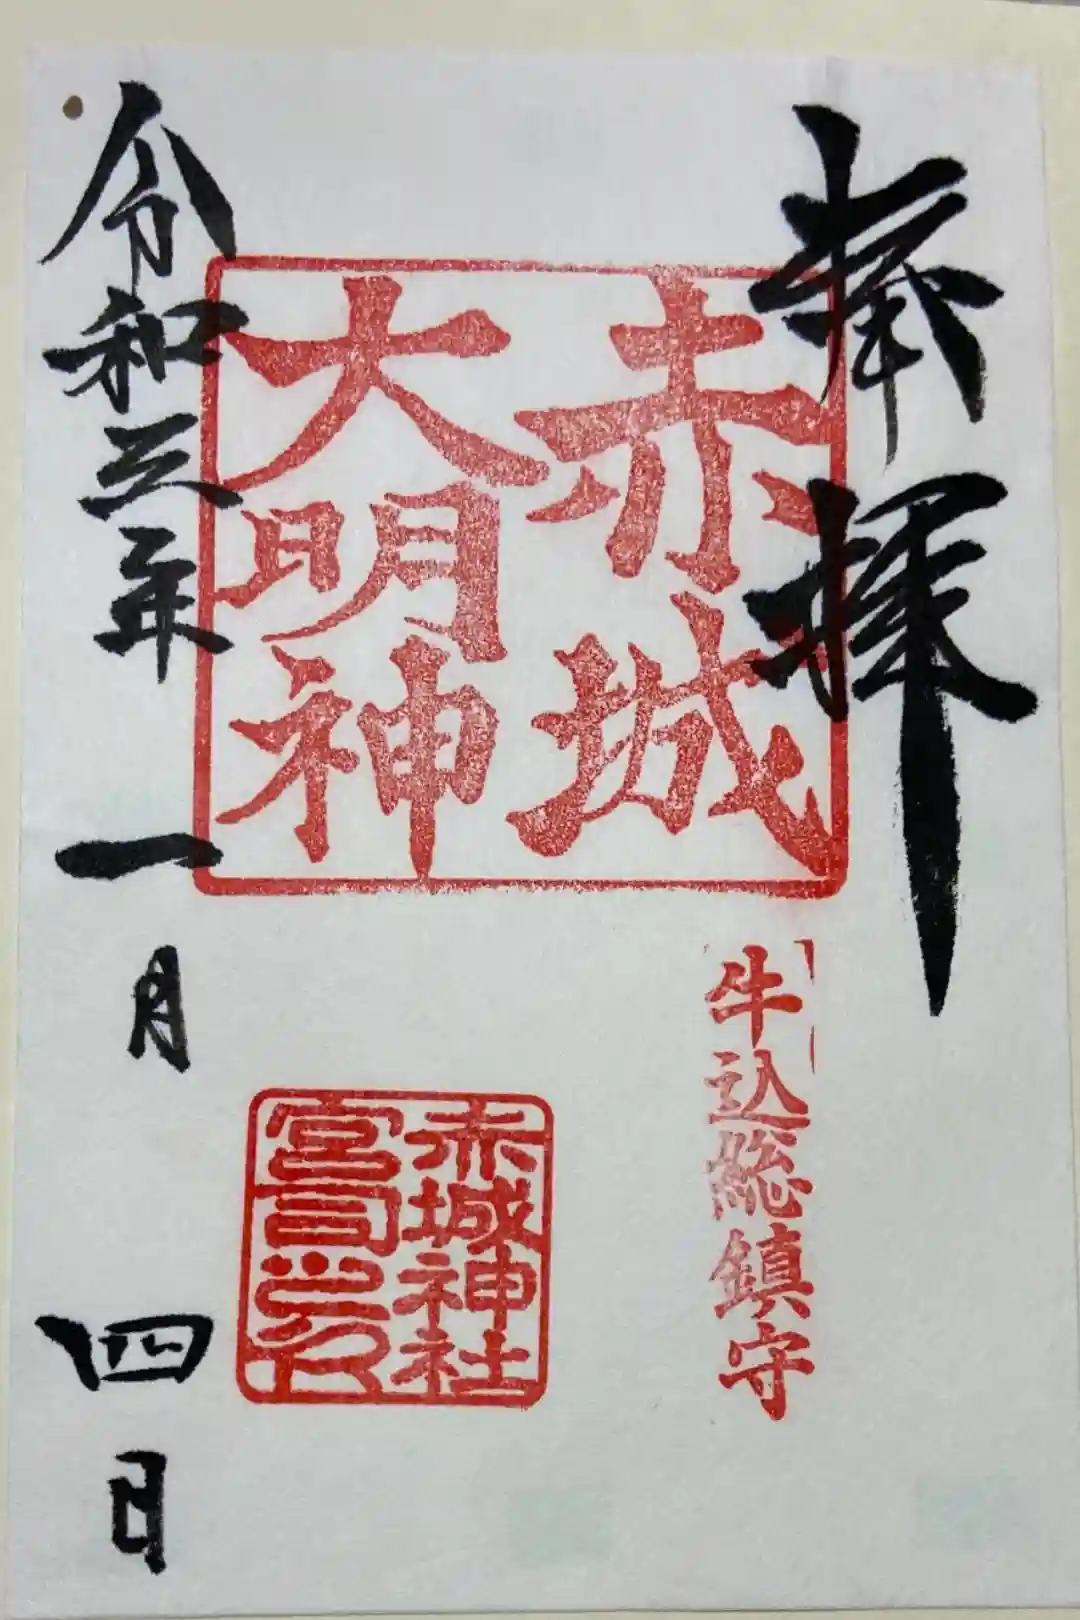 奉拝
赤城
大明神
牛込総鎮守
赤城神社
宮司之印
令和三年一月四日